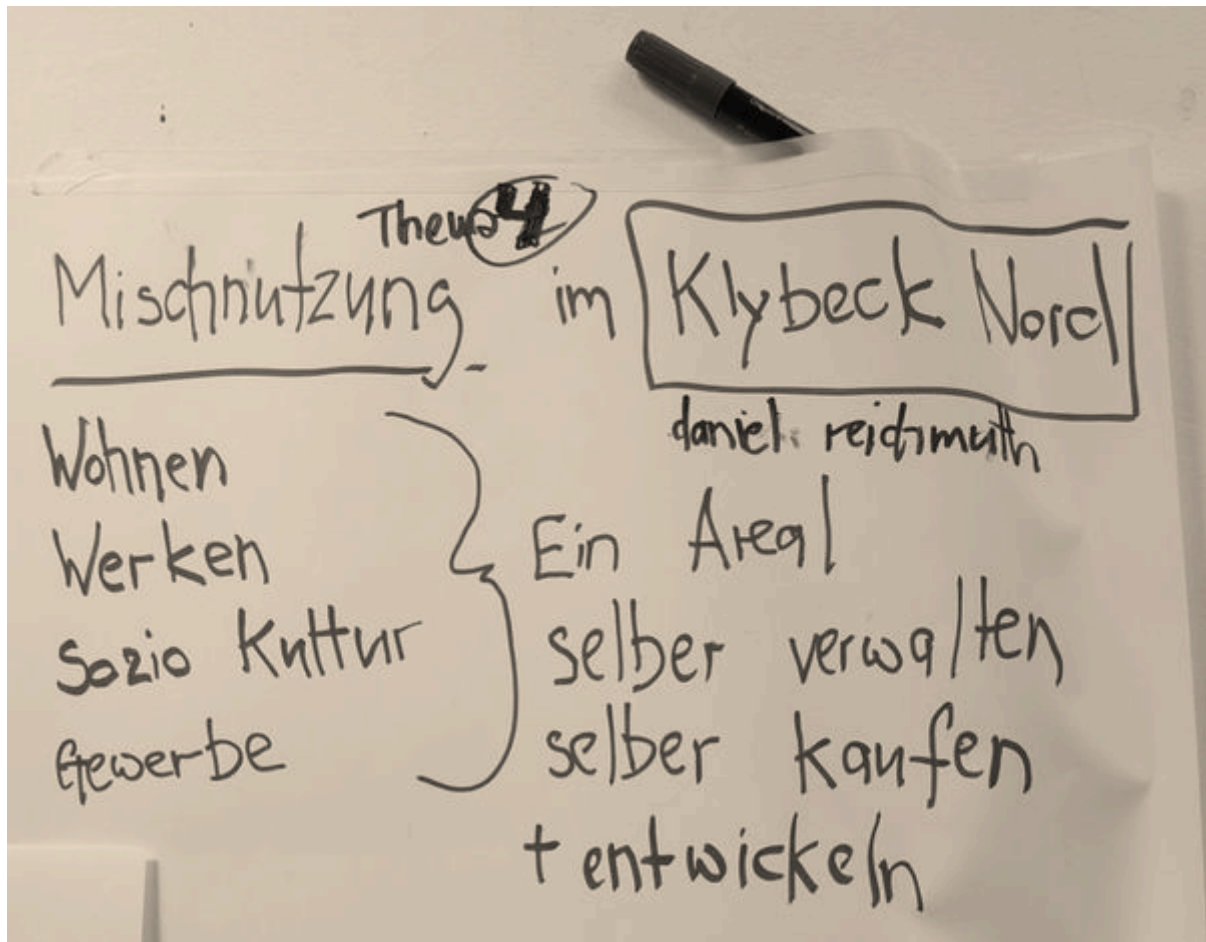 Thema 4
Mischnutzung im Klybeck Nord
daniel reichmuth
Wohnen
Werken
Sozio Kultur
Gewerbe
Ein Areal
selber verwalten
selber kaufen
+ entwickeln